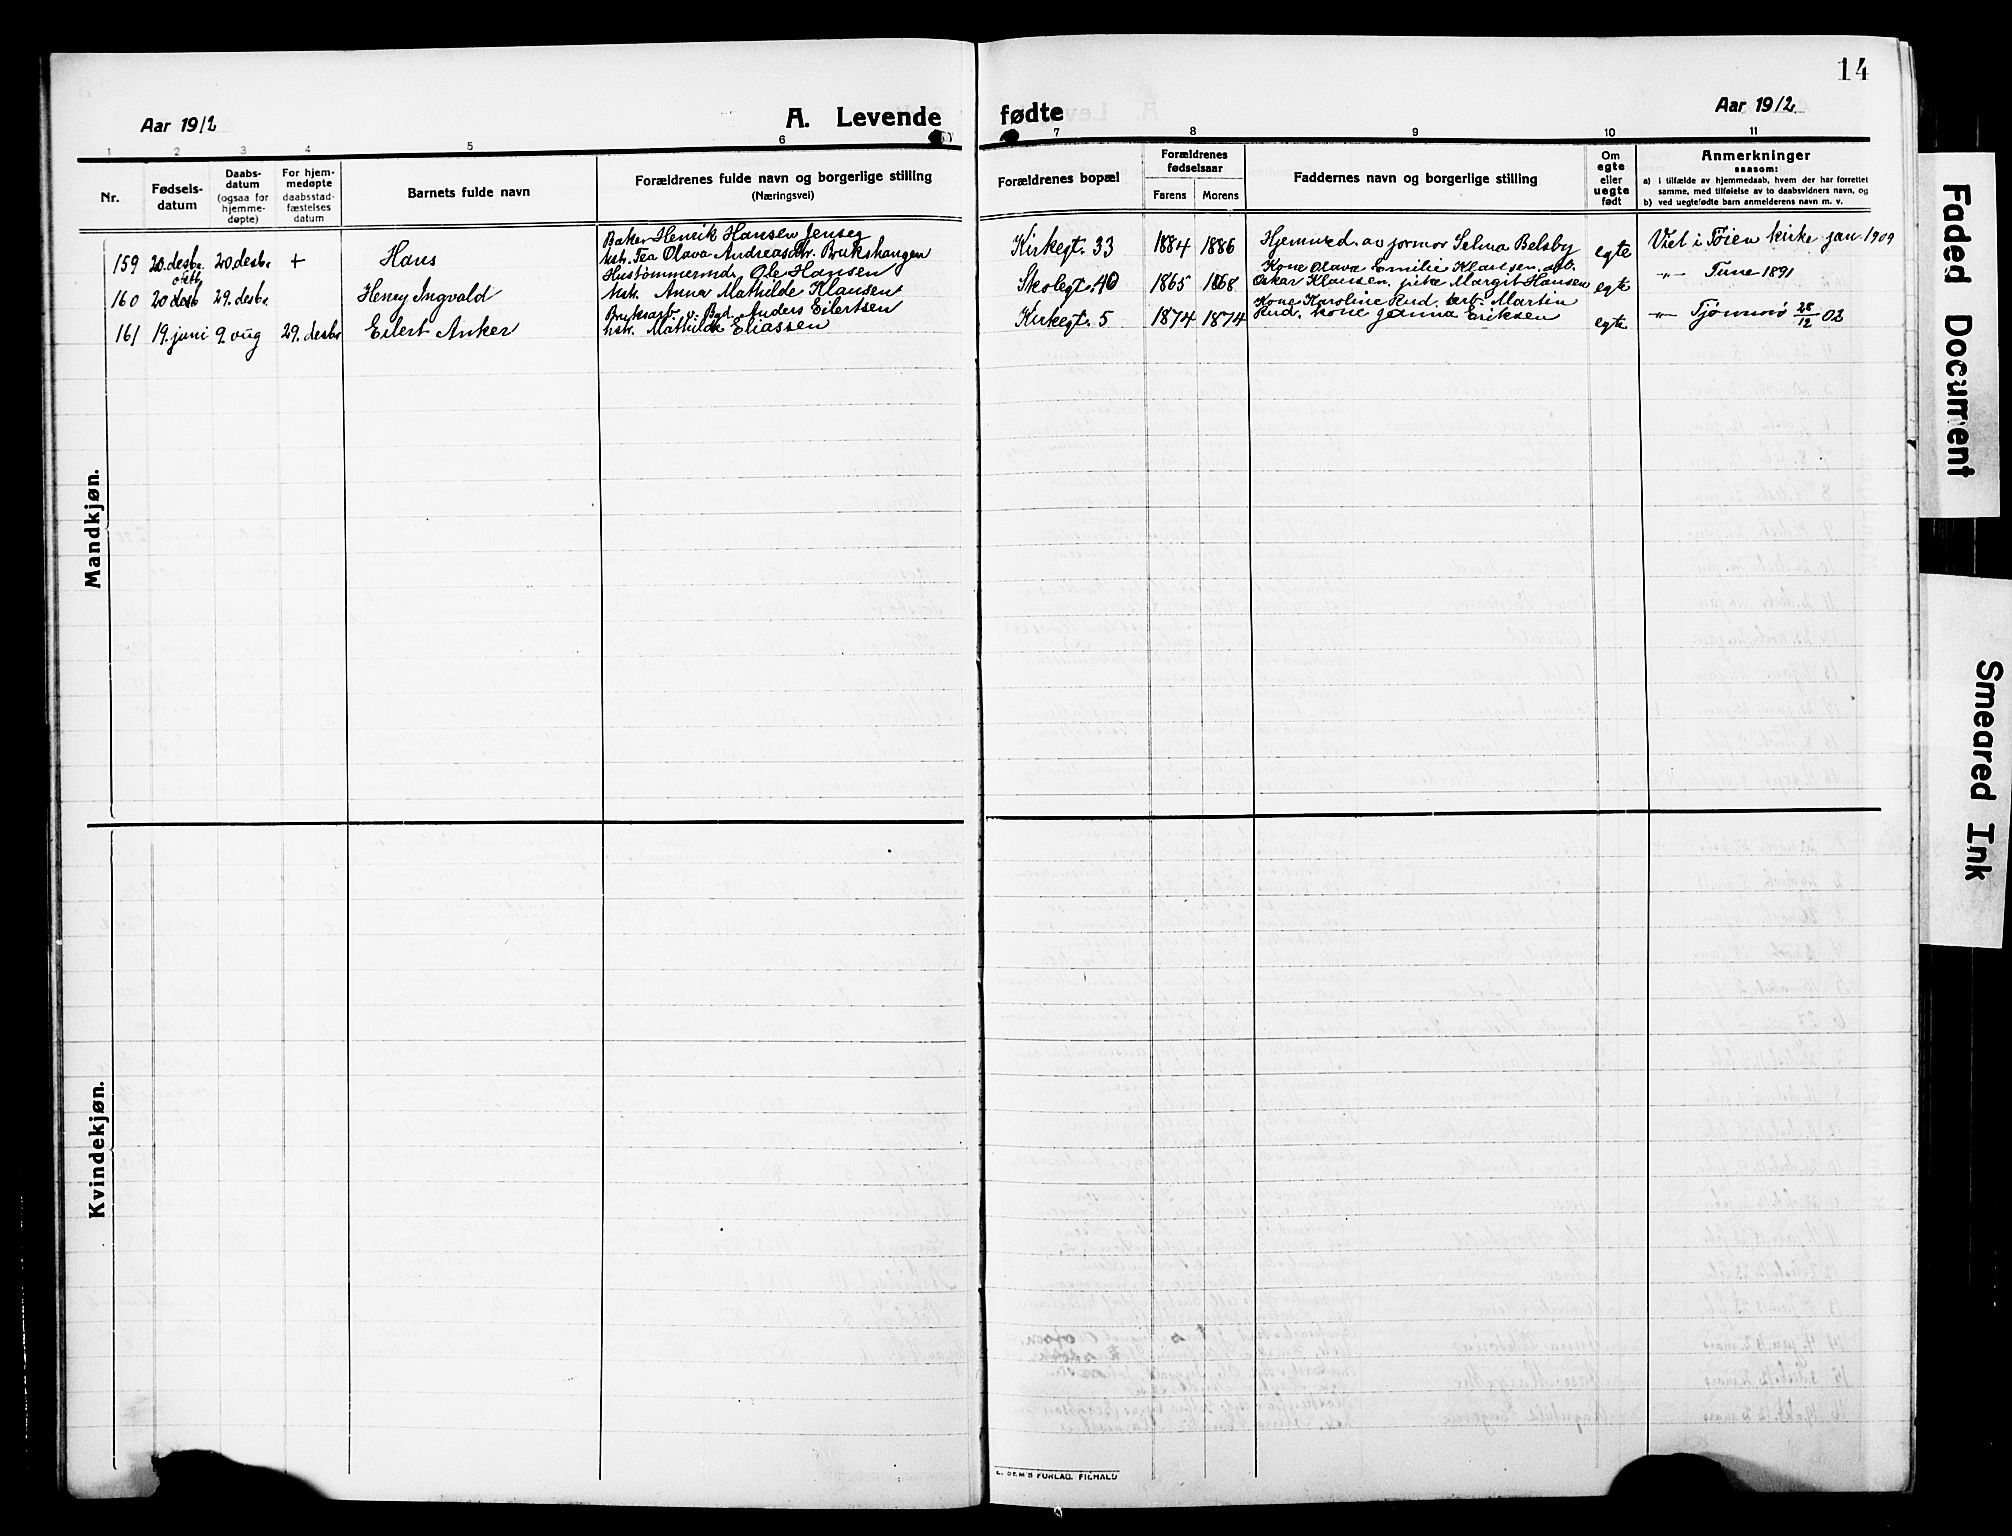 14
Aar 1912
A. Levende fødte
Aar 1912
1 2 3 4 5 6 7 8 9 10 11
Nr.
Fødsels-
datum
Daabs-
datum
(ogsaa for
hjemme-
døpte)
For hjem-
medøpte
daabsstad-
fæstelses
datum
Barnets fulde navn
Forældrenes fulde navn og borgerlige stilling
(Næringsvei)
Forældrenes bopæl
Forældrenes
fødselsaar
Farens Morens
Faddernes navn og borgerlige stilling
Om
egte
eller
uegte
født
Anmerkninger
saasom:
a) i tilfælde av hjemmedaab, hvem der har forrettet
samme, med tilføielse av to daabsvidners navn, og
b) ved uegtefødte barn anmelderens navn m. v.
Mandkjøn.
159 20. desbr. 20 desbr + Hans
Baker Henrik Hansen Jenseg
hstr. Tea Olava Andreasdtr. Brukshaugen
Kirkegt. 33 1884 1886
Hjemmed. av jormor Selma Belsby
egte
Viet i Tøien kirke jan. 1909
160 20 oktb 29. desbr Henry Ingvald
Hustømmermd. Ole Hansen
hstr. Anna Mathilde Klausen
Skolegt. 40 1865 1868
Kone Olava Emilie Klausen, arb.
Oskar Klausen, pike Margit Hansen
egte
-"- Tune 1891
161 19. juni 9. aug 29. desbr Eilert Anker
Bruksarb. v. Bgd. Anders Eilertsen
hstr. Mathilde Eliassen
Kirkegt. 5 1874 1874
Kone Karoline Rud. arb. Martin
Rud. kone Jenna Eriksen
egte
-"- Tjømø 28/12 02
Kvindekjøn.
Faded Document
Smeared Ink